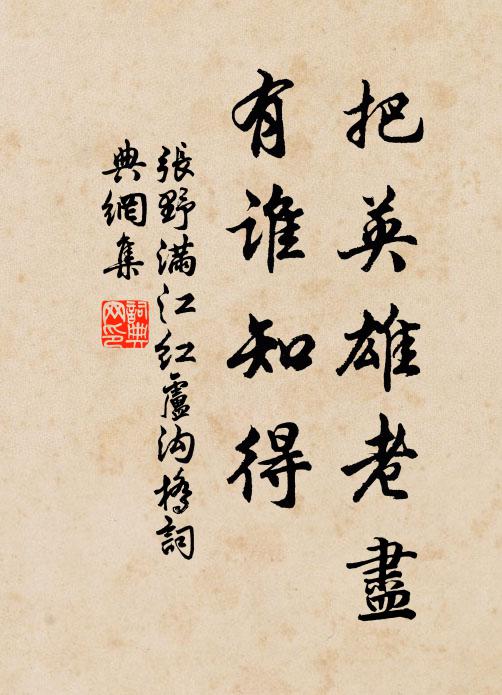 把英雄老盡
有誰知得
張野滿江紅盧沟橋詞
典網集
詞典网印